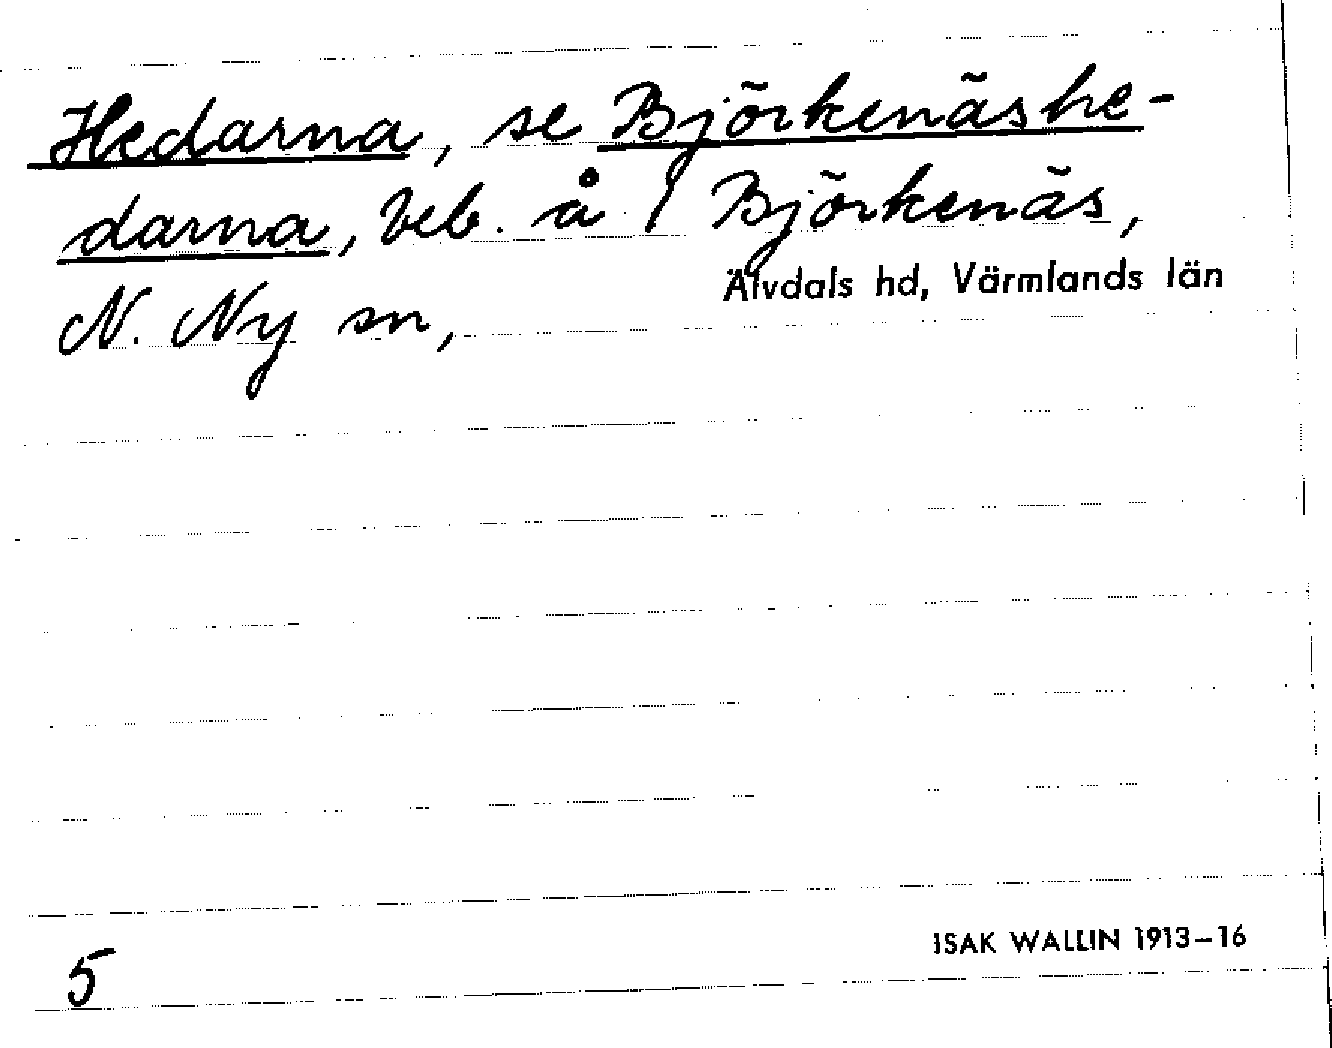 Hedarna, se Björkenäshe-
darna, beb. å Björkenäs,
N. Ny sn,
Älvdals hd, Värmlands län
5
ISAK WALLIN 1913–16